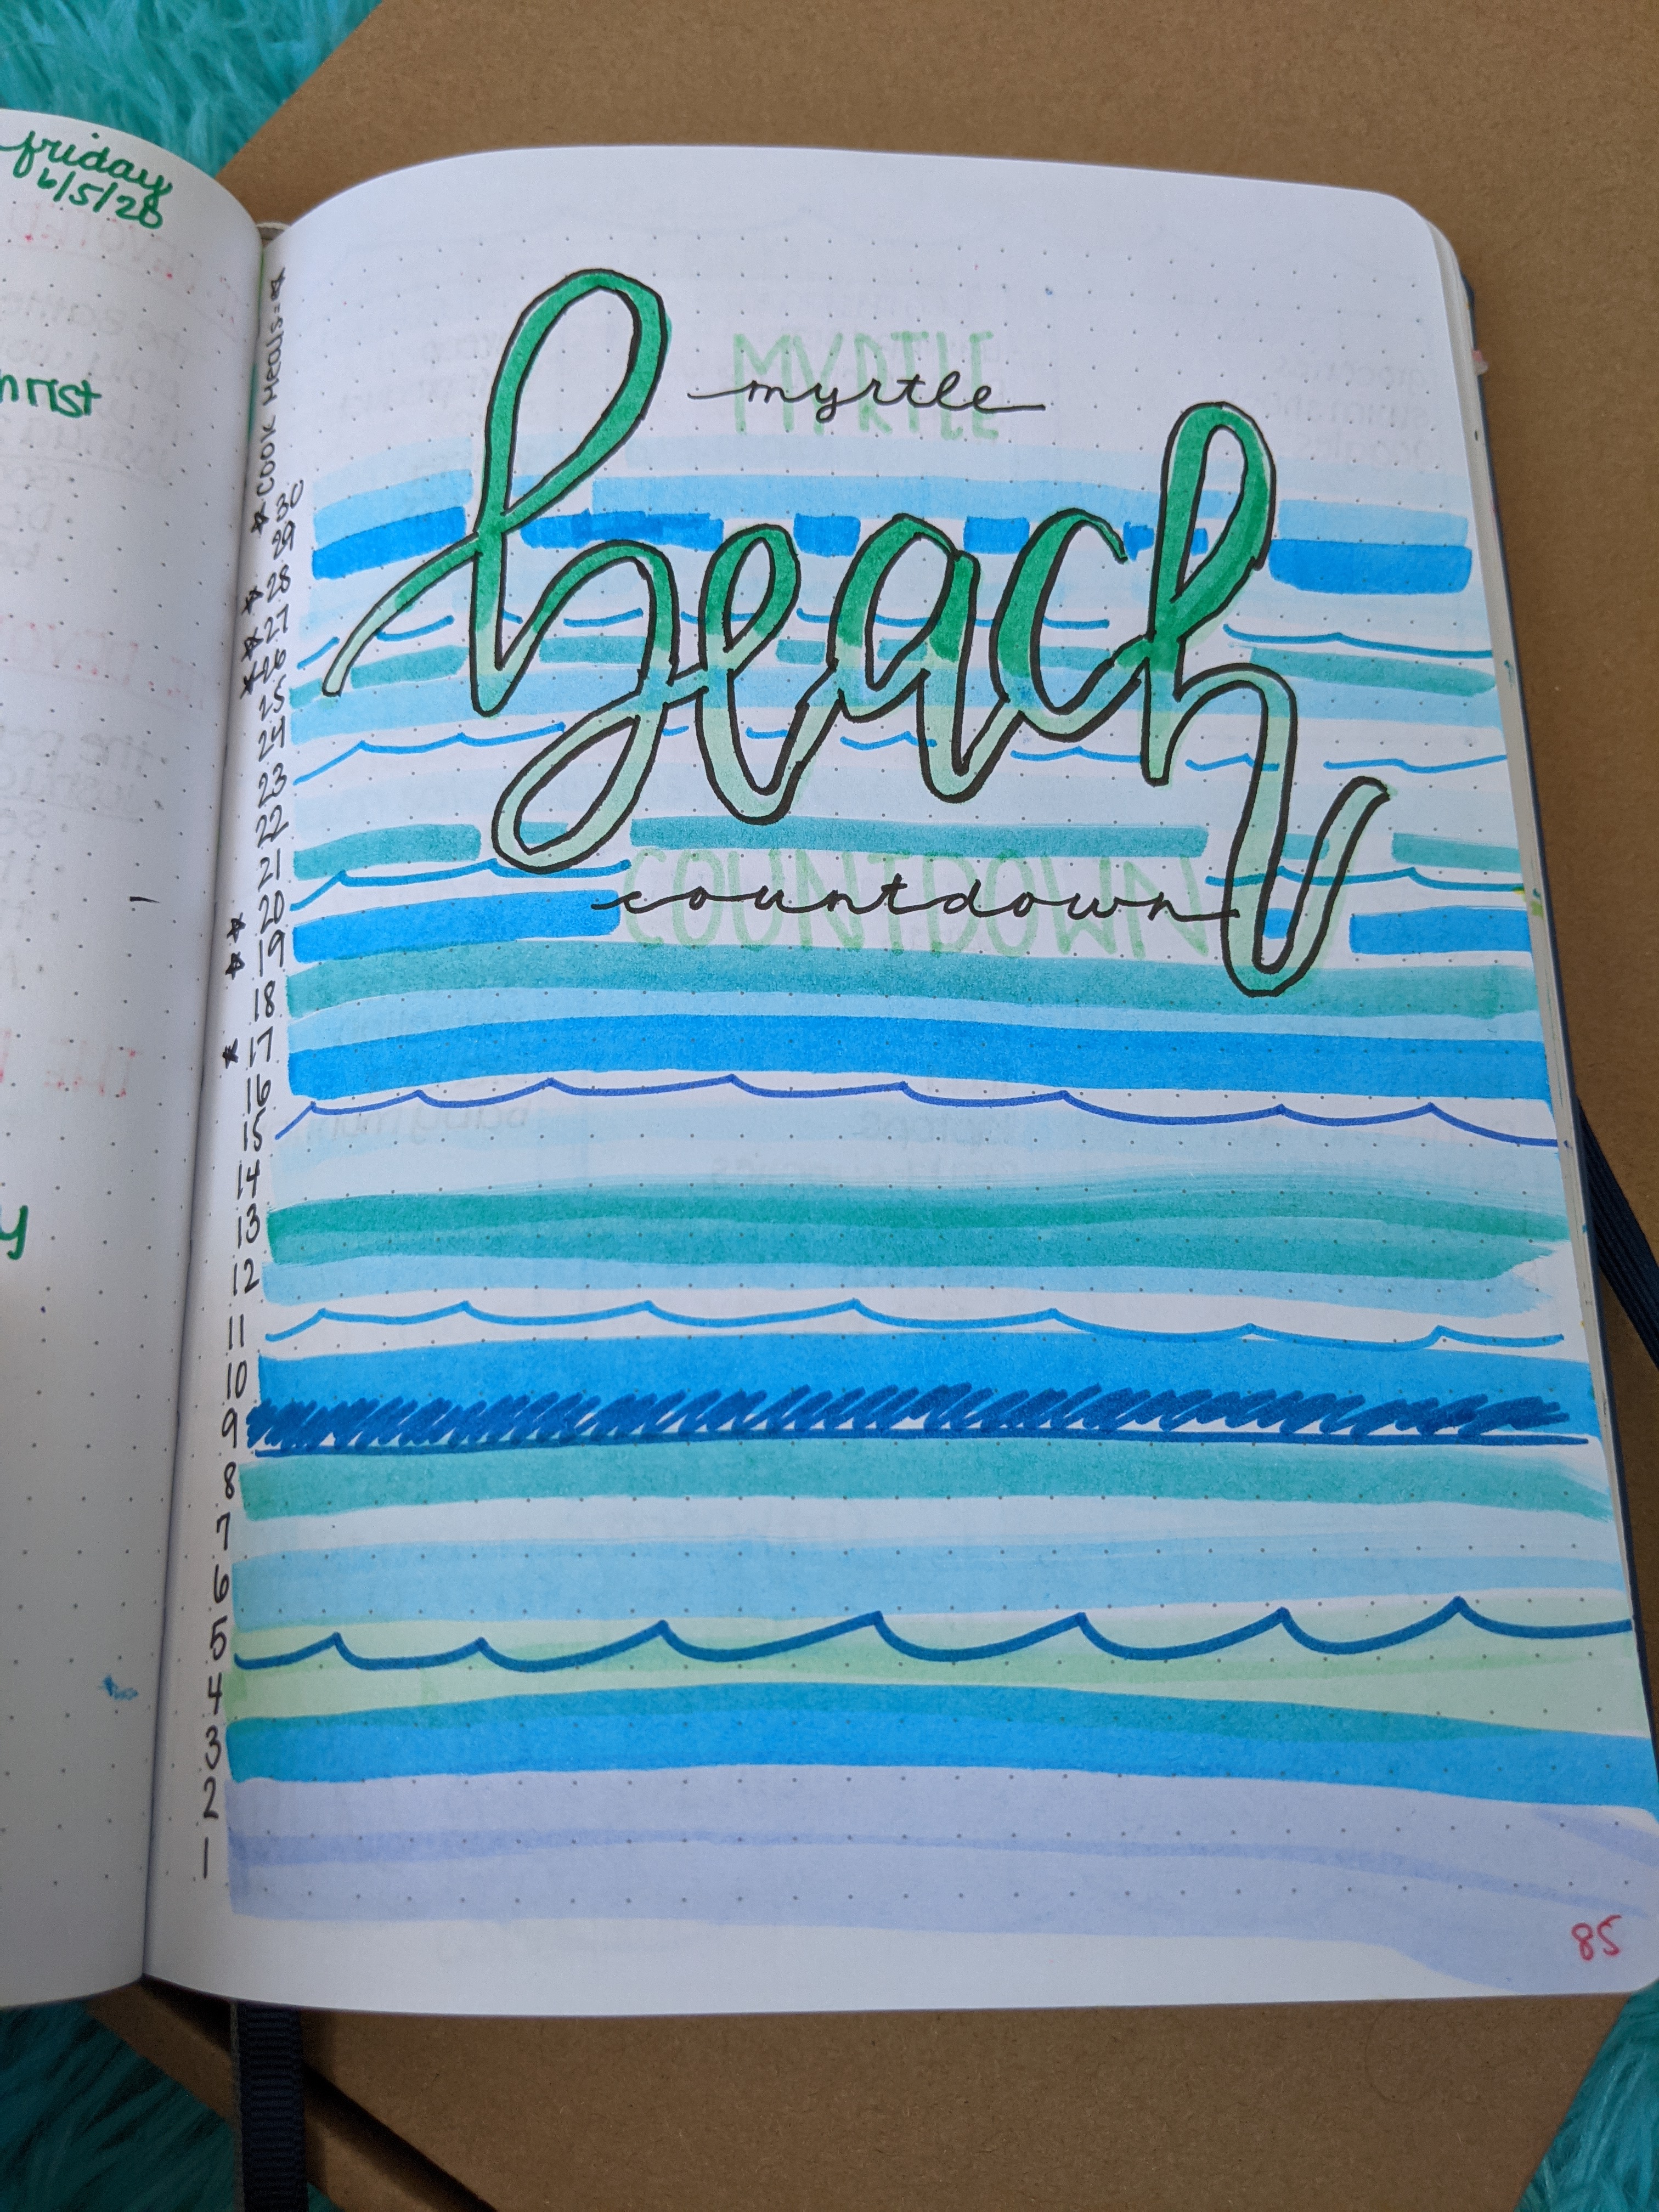 friday
6/5/20
hrist
y
Cook Meals = ☆
MYRTLE
myrtle
beach
COUNTDOWN
countdown
☆ 30
29
☆ 28
☆ 27
☆ 26
25
24
23
22
21
☆ 20
☆ 19
18
☆ 17
16
15
14
13
12
11
10
9
8
7
6
5
4
3
2
1
85